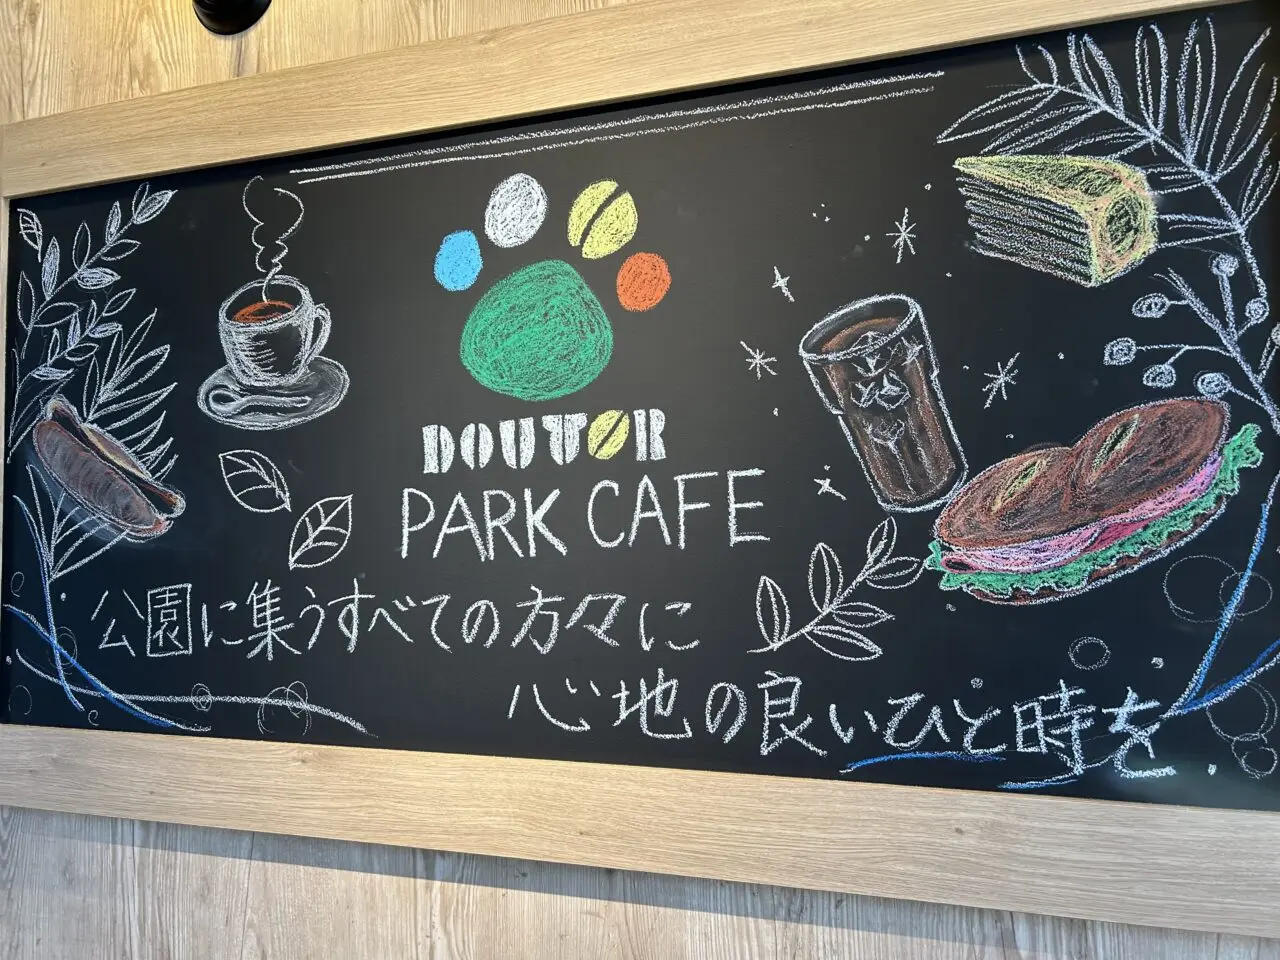 DOUTOR
PARK CAFE
公園に集うすべての方々に
心地の良いひと時を.